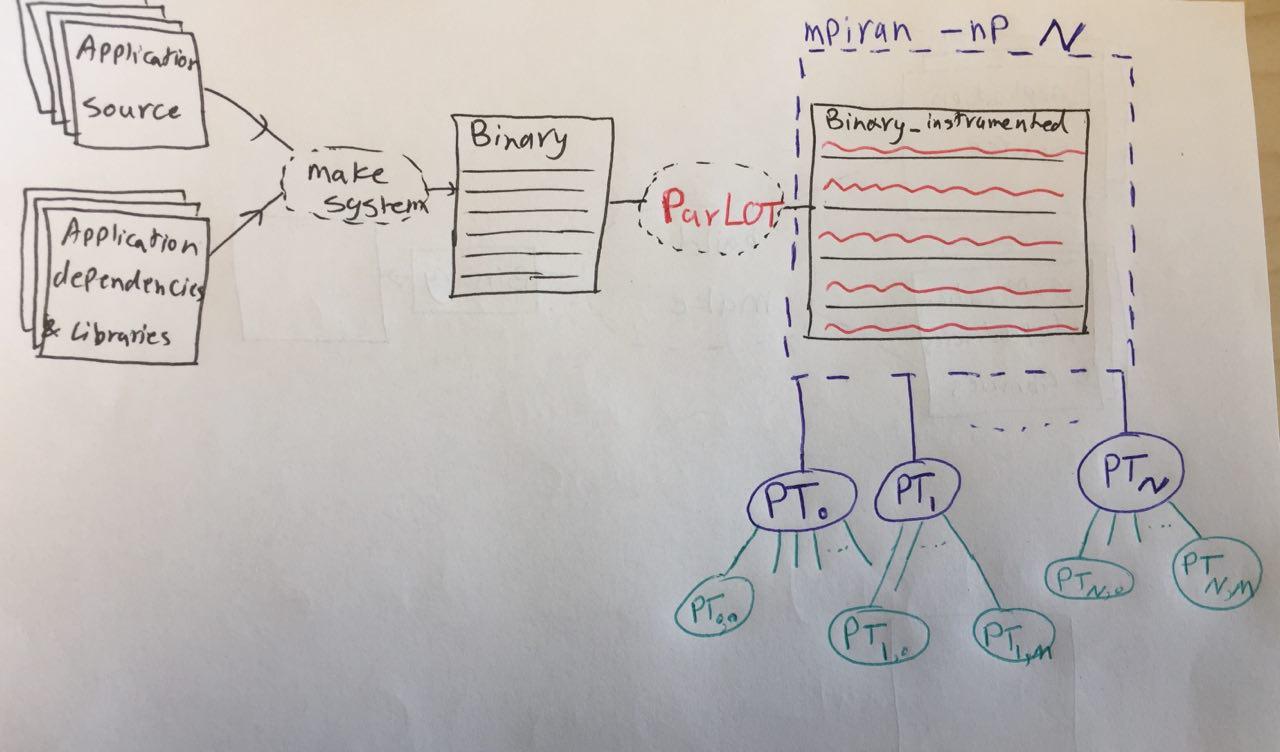 Application
Source
Application
dependencies
& Libraries
make
system
Binary
ParLOT
mpiran -nP N
Binary_instrumented
PT0
PT1
PTN
PT0,0
PT1,0
PT1,M
PTN,0
PTN,M